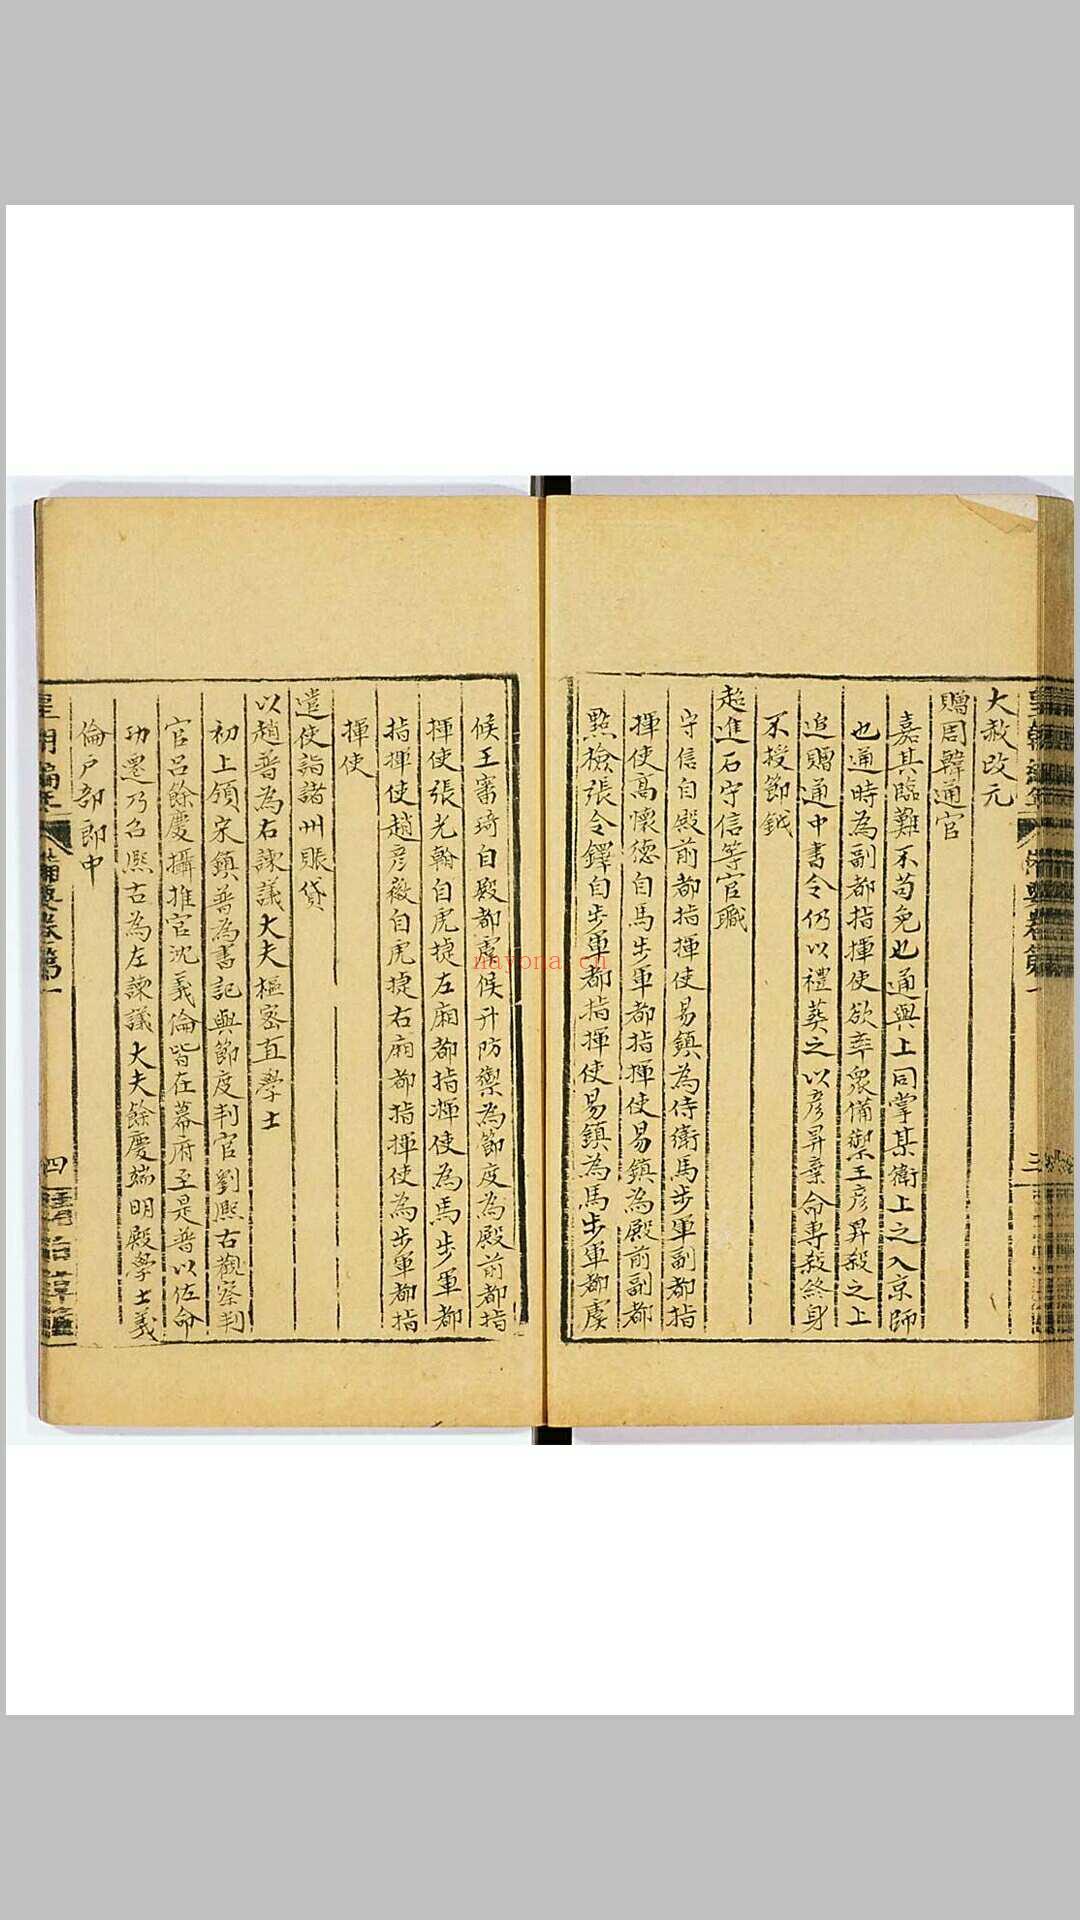 大赦改元
贈周韓通官
嘉其臨難不苟免也通與上同掌某衛上之入京師
也通時為副都指揮使欲率衆備禦王彦昇殺之上
追贈通中書令仍以禮葬之以彦昇棄命專殺終身
不授節鉞
超進石守信等官職
守信自殿前都指揮使易鎮為侍衛馬步軍副都指
揮使高懷德自馬步軍都指揮使易鎮為殿前副都
㸃檢張令鐸自步軍都指揮使易鎮為馬步軍都虞
候王審琦自殿都虞候升防禦為節度為殿前都指
揮使張光翰自虎捷左廂都指揮使為馬步軍都
指揮使趙彦徽自虎捷右廂都指揮使為步軍都指
揮使
遣使詣諸州賑貸
以趙普為右諫議大夫樞密直學士
初上領宋鎮普為書記與節度判官劉熙古觀察判
官吕餘慶攝推官沈義倫皆在幕府至是普以佐命
功遷乃召熙古為左諫議大夫餘慶端明殿學士義
倫戶部郎中
四
nayona.cn